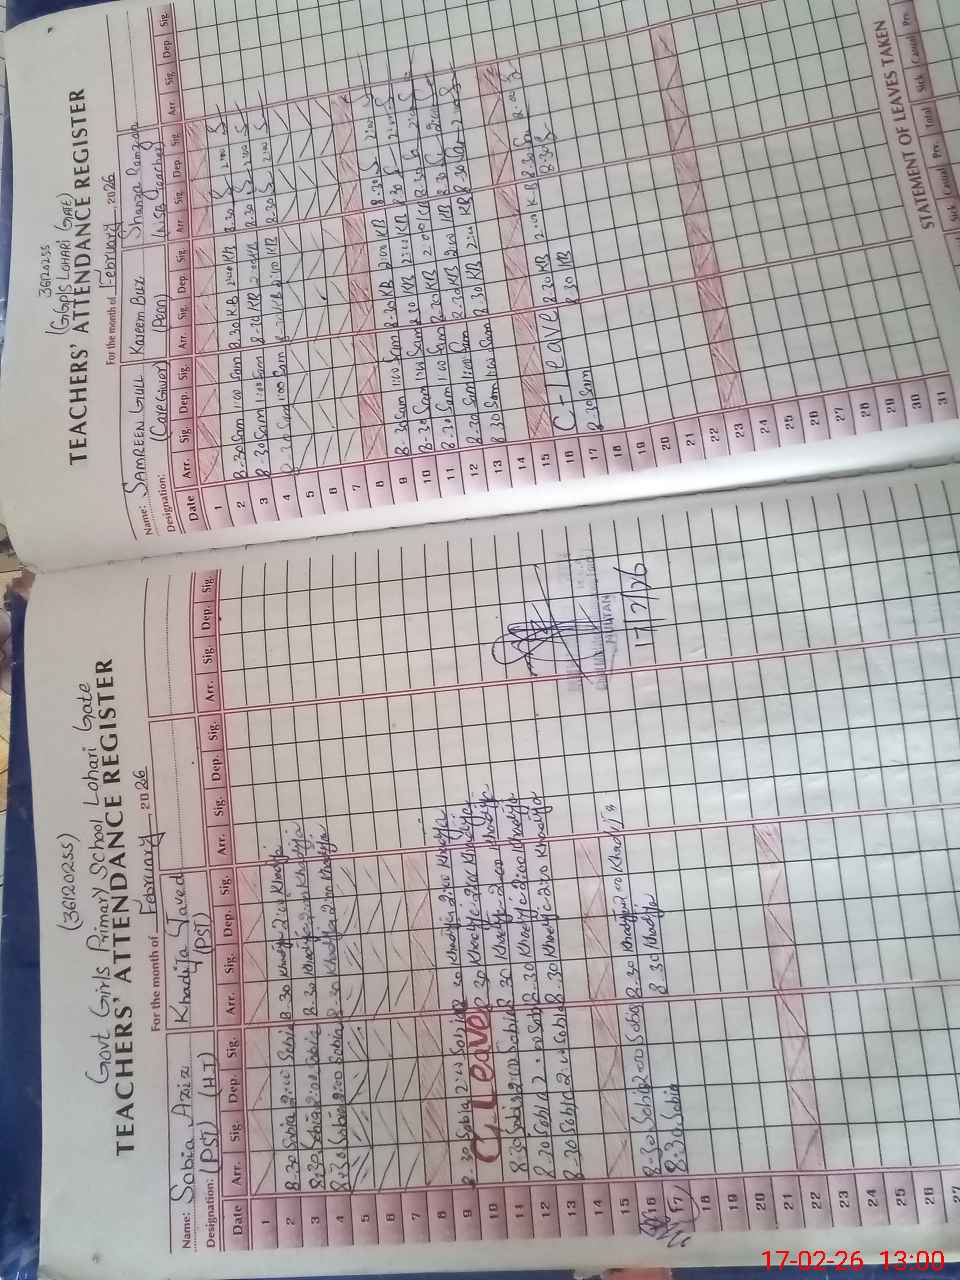 Govt Girls Primary School Lohari Gate
(36120255)
TEACHERS' ATTENDANCE REGISTER
For the month of February 2026
Name: Sobia Aziz Khadija Javed
Designation: (PST) (H.T) (PST)
Date Arr. Sig. Dep. Sig. Arr. Sig. Dep. Sig. Arr. Sig. Dep. Sig. Arr. Sig. Dep. Sig.
1
2 8.30 Sobia 2:00 Sobia 8.30 Khadija 2:00 Khadija
3 8:30 Sobia 2:00 Sobia 8.30 Khadija 2:00 Khadija
4 8:30 Sobia 2:00 Sobia 8.30 Khadija 2:00 Khadija
5
6
7
8
9 8.30 Sobia 2:00 Sobia 8.30 Khadija 2:00 Khadija
10 C. Leave 8.30 Khadija 2:00 Khadija
11 8:30 Sobia 2:00 Sobia 8.30 Khadija 2:00 Khadija
12 8.30 Sobia 2:00 Sobia 8.30 Khadija 2:00 Khadija
13 8.30 Sobia 2:00 Sobia 8.30 Khadija 2:00 Khadija
14
15
16 8.30 Sobia 2:00 Sobia 8.30 Khadija 2:00 Khadija
17 8:30 Sobia 8.30 Khadija
MULTAN
17/2/26
18
19
20
21
22
23
24
25
26
27
36120255
GGPS LOHARI GATE
TEACHERS' ATTENDANCE REGISTER
For the month of February 2026
Name: SAMREEN GULL Kareem Bux Shanza Ramzan
Designation: (Care Giver) (Peon) (NSB Teacher)
Date Arr. Sig. Dep. Sig. Arr. Sig. Dep. Sig. Arr. Sig. Dep. Sig. Arr. Sig. Dep. Sig.
1
2 8.30 Sam 1:00 Sam 8.30 KB 2:00 KB 8.30 S 2:00 S
3 8.30 Sam 1:00 Sam 8.30 KB 2:00 KB 8.30 S 2:00 S
4 8.30 Sam 1:00 Sam 8.30 KB 2:00 KB 8.30 S 2:00 S
5
6
7
8
9 8.30 Sam 1:00 Sam 8.30 KB 2:00 KB 8.30 S 2:00 S
10 8.30 Sam 1:00 Sam 8.30 KB 2:00 KB 8.30 S 2:00 S
11 8.30 Sam 1:00 Sam 8.30 KB 2:00 KB 8.30 S 2:00 S
12 8.30 Sam 1:00 Sam 8.30 KB 2:00 KB 8.30 S 2:00 S
13 8.30 Sam 1:00 Sam 8.30 KB 2:00 KB 8.30 S 2:00 S
14
15
16 C-leave 8.30 KB 2:00 KB 8.30 S 2:00 S
17 8.30 Sam 8.30 KB 8.30 S
18
19
20
21
22
23
24
25
26
27
28
29
30
31
STATEMENT OF LEAVES TAKEN
Sick Casual Prv. Total Sick Casual Prv.
17-02-26 13:00